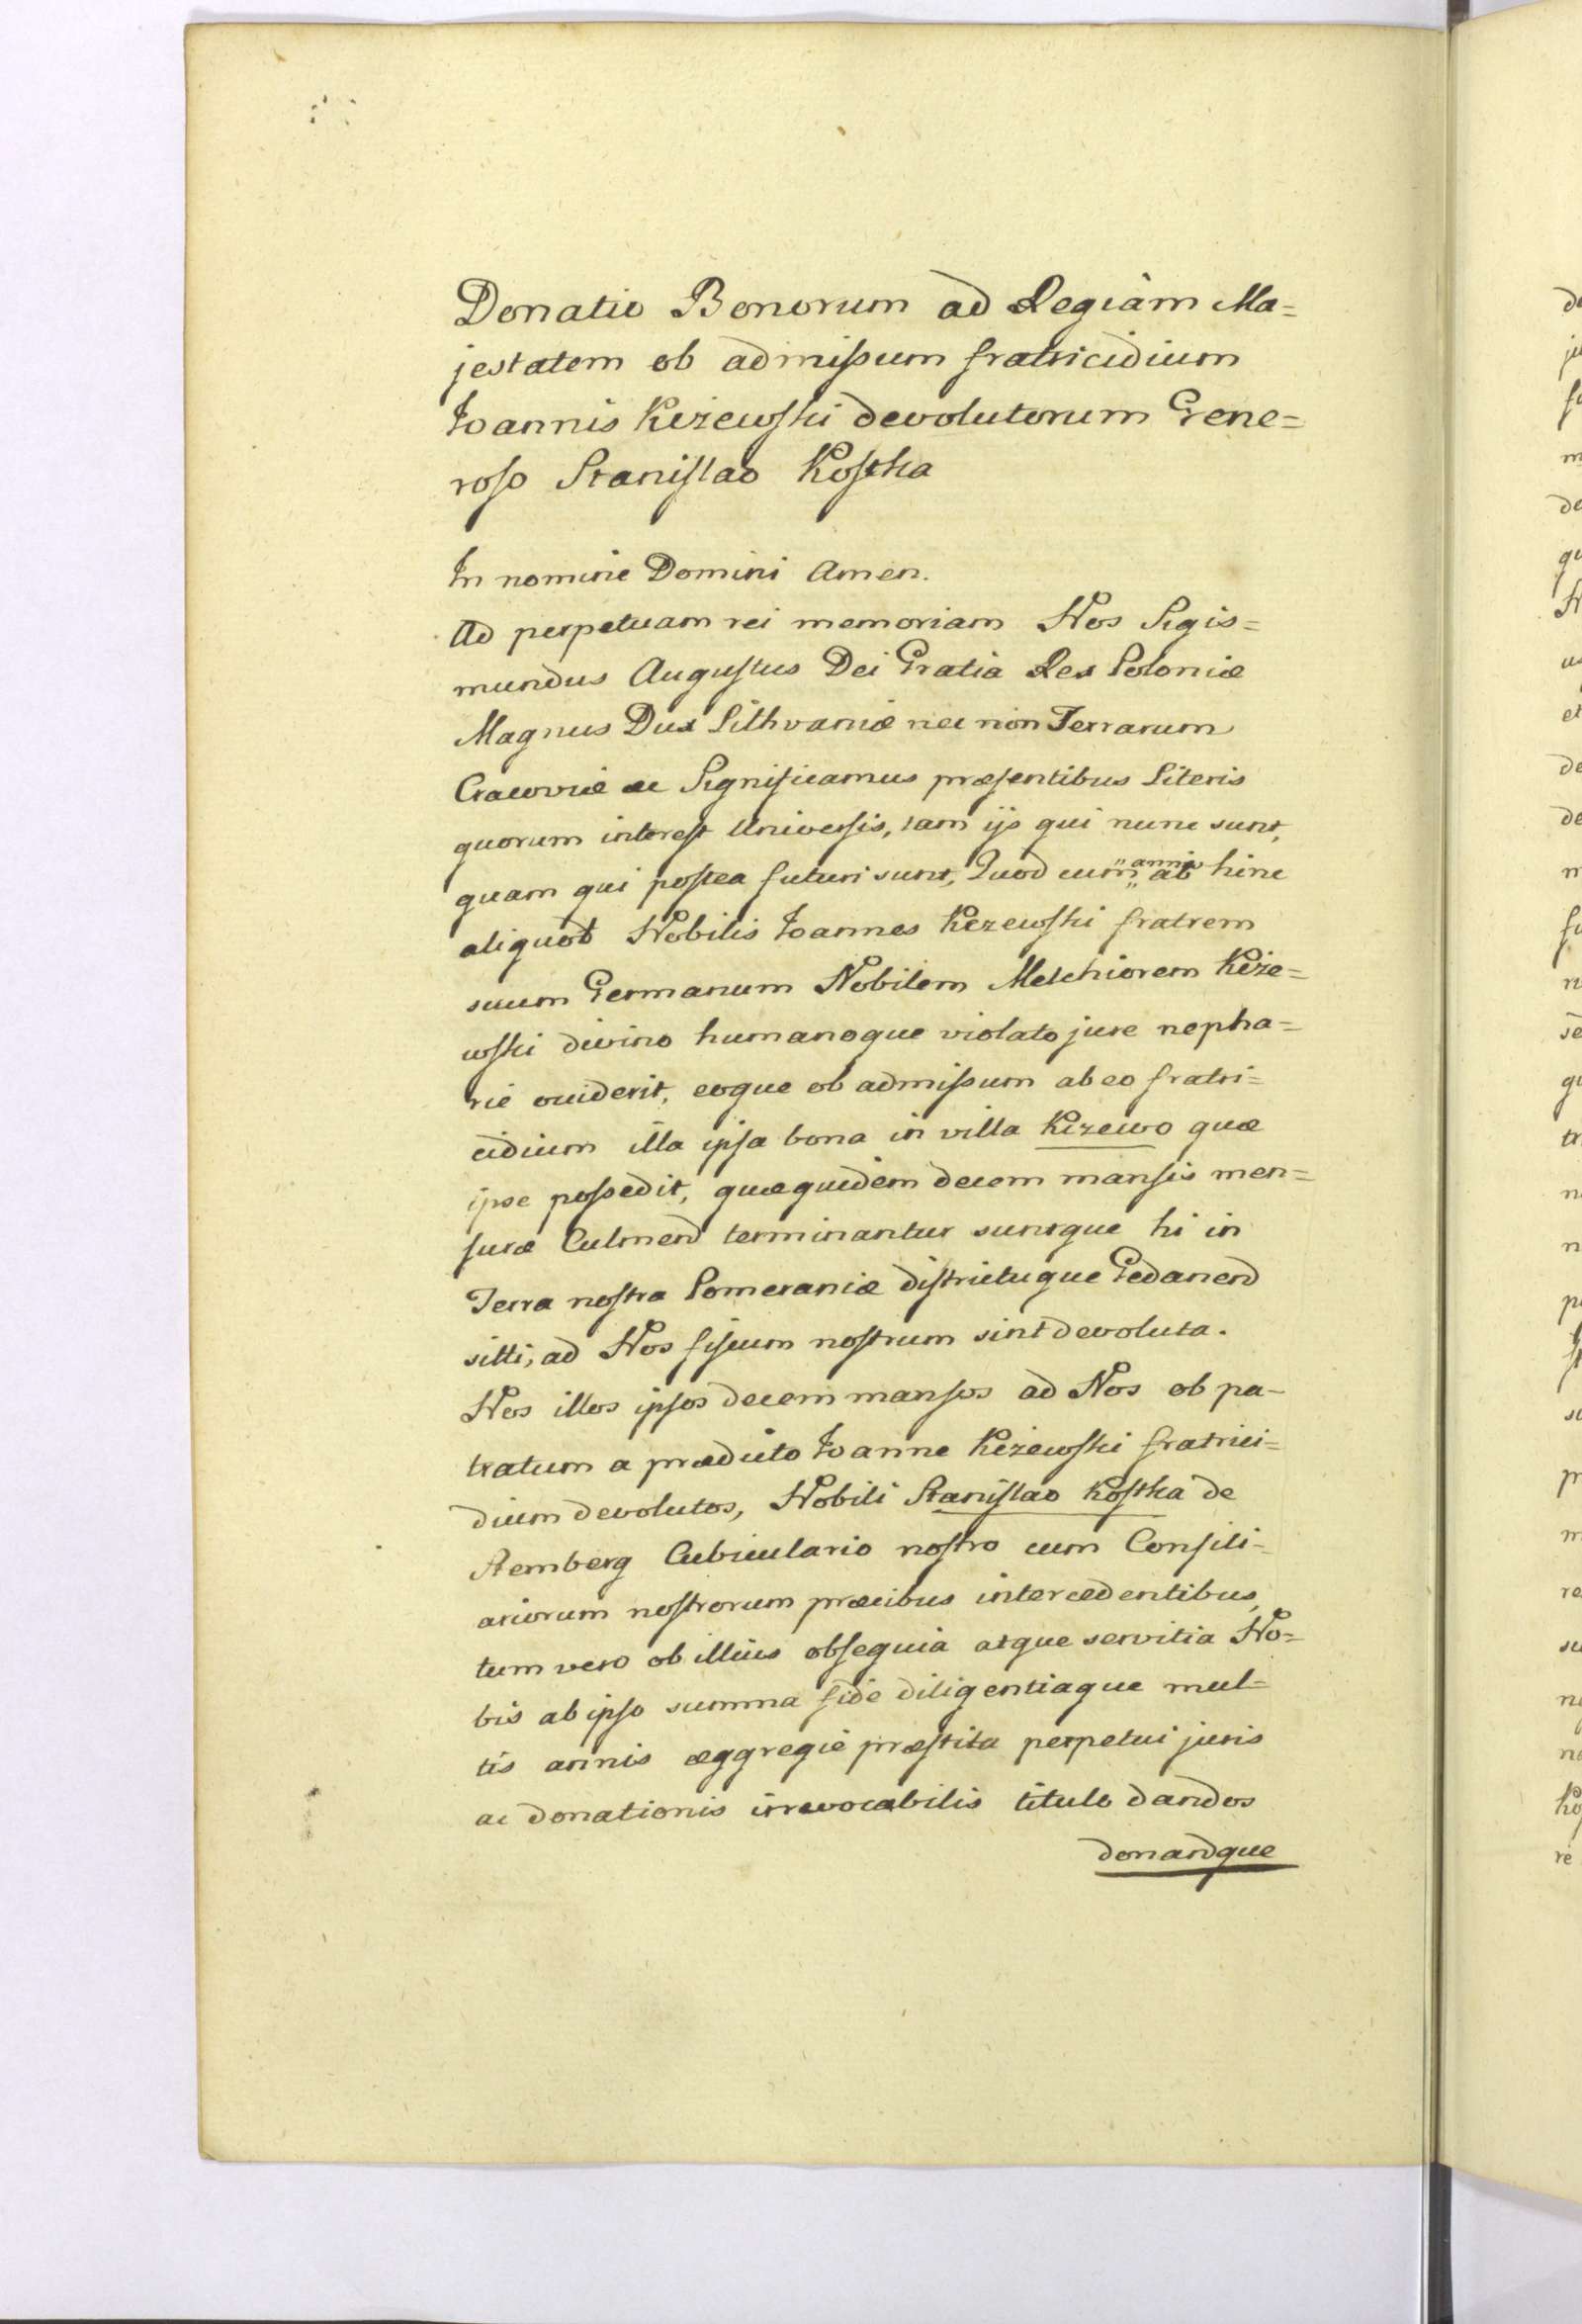 Donatio Bonorum ad Regiam Ma=
jestatem ob admissum fratricidium
Joannis Kiżewski devolutorum Gene=
roso Stanislao Kostka
In nomine Domini Amen.
Ad perpetuam rei memoriam Nos Sigis=
mundus Augustus Dei Gratia Rex Poloniæ
Magnus Dux Lithvaniæ nec non Terrarum
Cracoviæ &c Significamus præsentibus Literis
quorum interest Universis, tam ijs qui nunc sunt,
quam qui postea futuri sunt, Quod cum annis ab hinc
aliquot Nobilis Joannes Kezewski fratrem
suum Germanum Nobilem Melchiorem Kiże=
wski divino humanoque violato jure nepha=
rie occiderit, eoque ob admissum ab eo fratri=
cidium illa ipsa bona in villa Kizewo quæ
ipse possedit, quæquidem decem mansis men=
suræ Culmens terminantur suntque hi in
Terra nostra Pomeraniæ districtuque Gedanens
sitti, ad Nos fiscum nostrum sint devoluta.
Nos illos ipsos decem mansos ad Nos ob pa-
tratum a prædicto Joanne Kiżewski fratrici=
dium devolutos, Nobili Stanislao Kostka de
Stemberg Cubiculario nostro cum Consili=
ariorum nostrorum præcibus intercedentibus,
tum vero ob illius obsequia atque servitia No=
bis ab ipso summa fide diligentiaque mul=
tis annis æggregie præstita perpetui juris
ac donationis irrevocabilis titulo dandos
donandque